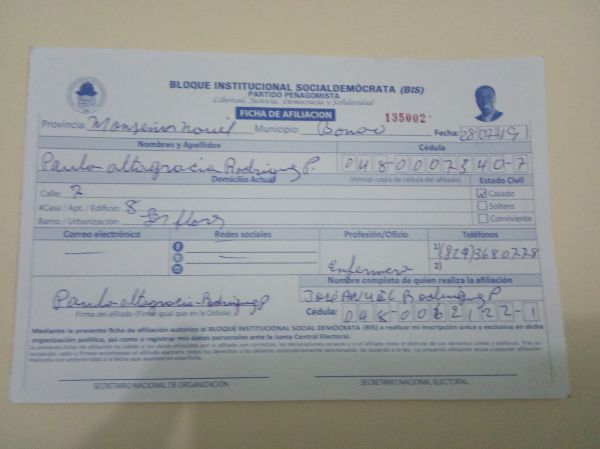 BLOQUE INSTITUCIONAL SOCIALDEMÓCRATA (BIS)
PARTIDO PEÑAGOMISTA
Libertad, Justicia, Democracia y Solidaridad
FICHA DE AFILIACION
135002
Provincia: Monseñor Nouel Municipio: Bonao Fecha: 28/07/19
Nombres y Apellidos Cédula
Paula altagracia Rodriguez P. 048-0007340-7
Domicilio Actual (Anexar copia de cédula del afiliado) Estado Civil
Calle: 2 Casado
#Casa / Apt. / Edificio: 8 Soltero
Barrio / Urbanización: Conviviente
Correo electrónico Redes sociales Profesión/Oficio Teléfonos
Enfermera 1) (829)3680778
2)
Nombre completo de quien realiza la afiliación
Paula altagracia Rodriguez P JOSE ANUEL Rodriguez P
Firma del afiliado (Firme igual que en la Cédula) Cédula: 048-0062122-1
Mediante la presente ficha de afiliación autorizo al BLOQUE INSTITUCIONAL SOCIAL DEMÓCRATA (BIS) a realizar mi inscripción única y exclusiva en dicha
organización política, así como a registrar mis datos personales ante la Junta Central Electoral.
SECRETARIO NACIONAL DE ORGANIZACIÓN SECRETARIO NACIONAL ELECTORAL